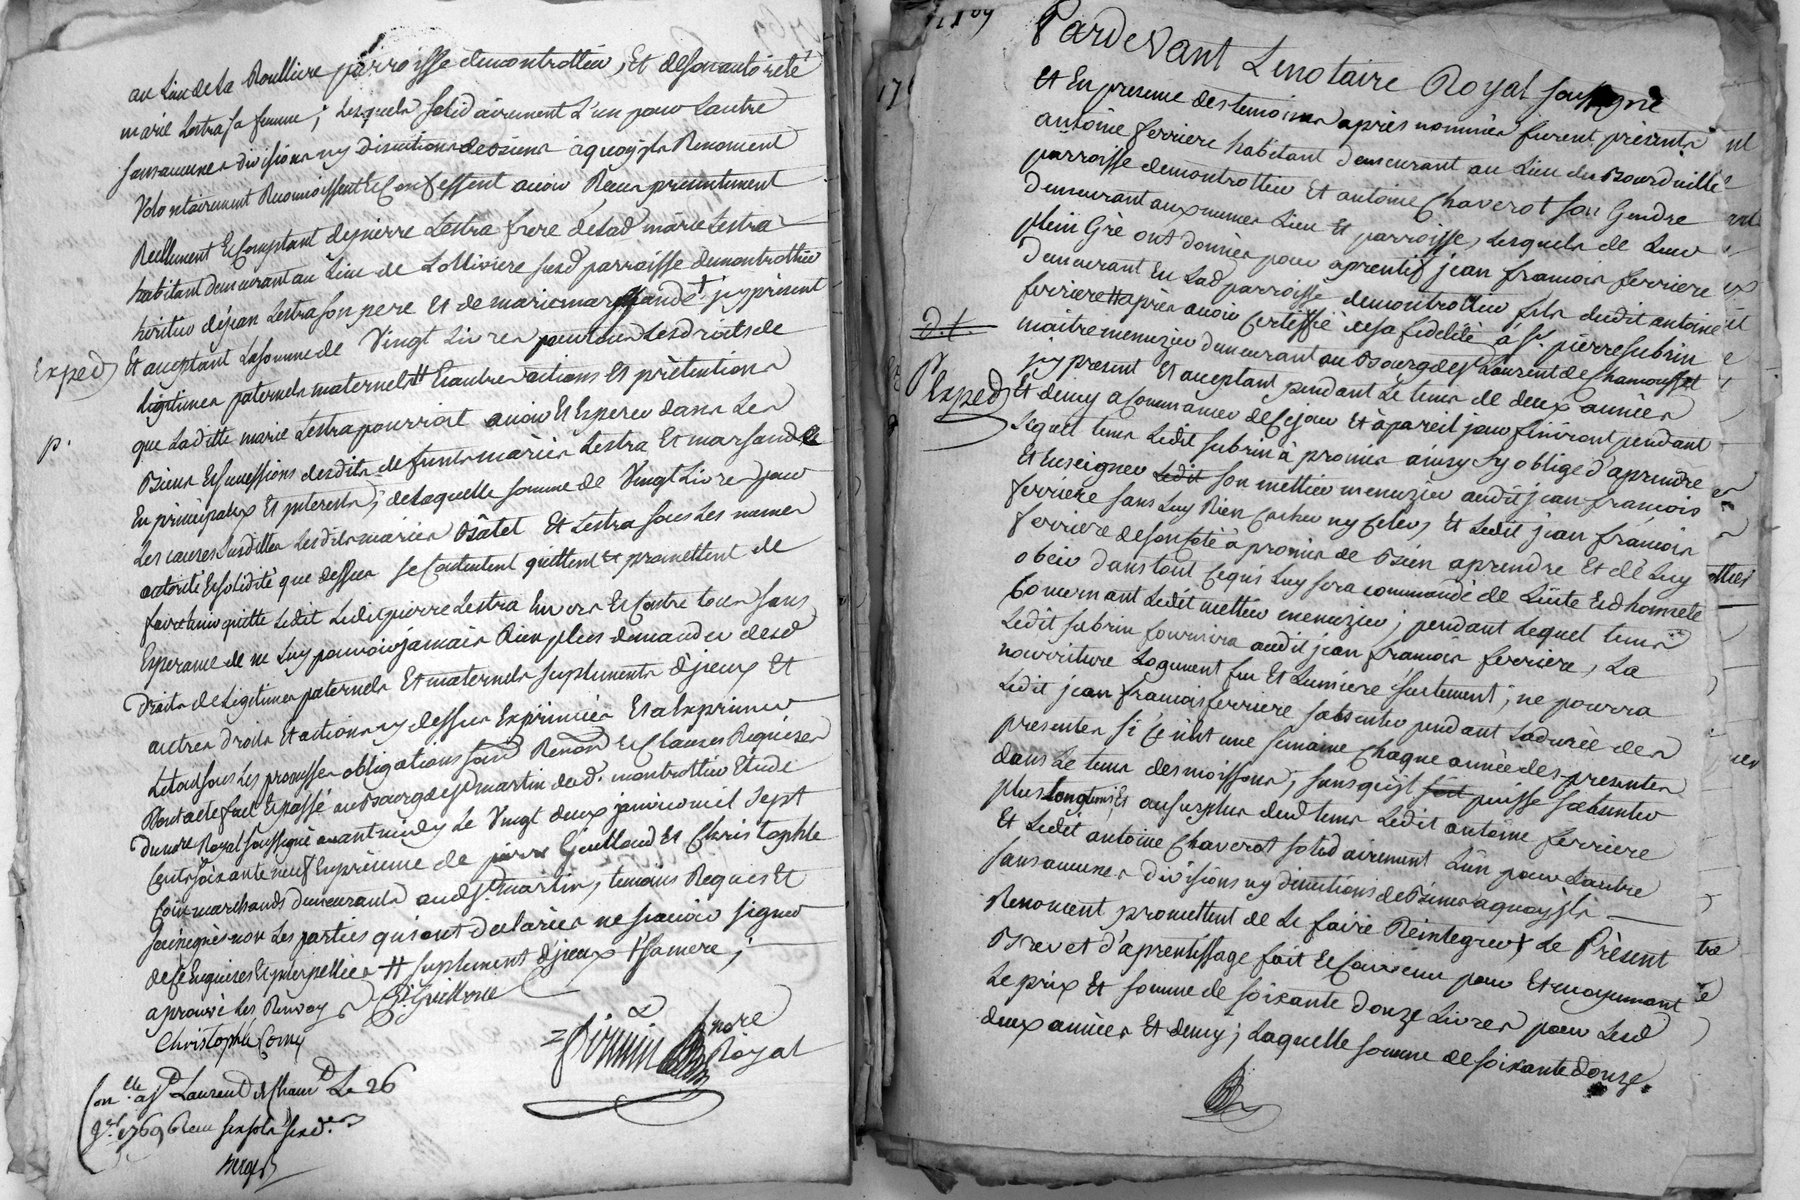 au Lieu de la Roulliere parroisse demontrottieu, Et desonautorité
marie Lestra sa femme; Lesquels solidairement L'un pour Lautre
sans aucunes divisions ny discutions debiens aquoy ils Renoncent
Volontairement Reconnoissent Et Confessent avoir Receu presentement
Reellement Et Comptant depierre Lestra frere delad marie Lestra
habitant demeurant au Lieu de Lolliviere susd parroisse demontrottieu
heritier dejean Lestra son pere Et de marie marsande † jcy present
Et acceptant Lasomme de Vingt Livres pour tous Les droits de
Legitimes paternels maternels # Et autres actions Et prétentions
que Laditte marie Lestra pourroit avoir Et Esperer dans Les
Biens Et successions desdits defunts mariés Lestra Et marsande
En principaux Et jnterets; de Laquelle somme de Vingt Livres pour
Les causes susdittes Lesdits mariés Bâtet Et Lestra sous Les memes
autorité Et solidité que dessus se Contentent quittent Et promettent de
faire tenir quitte Ledit Ledit pierre Lestra Envers Et Contre tous sans
Esperance de ne Luy pouvoir jamais Rien plus demander desd
Droits de Legitimes paternels Et maternels suplements d'jceux Et
autres droits Et actions cy dessus Exprimés Et a Exprimer
Le tout sous Les promesses obligations soum Renon Et Clauses Requises
Dont acte fait Et passé au Bourg de St martin dud. montrottieu Etude
Du notre Royal soussigné avant midy Le Vingt deux janvier mil sept
Cents soixante neuf En presence de pierre Guilloud Et Christophle
Comy marchands demeurants aud St martin, temoins Requis Et
soussignés non Les parties qui ont declarées ne scavoir signer
de Ce Enquises Et jnterpellées # suplement d'jceux † sa mere;
aprouvé Les Renvoys
Christophle Comy
nore
Royal
Expéd
p.
Con.lle a St Laurent de Cham.t Le 26
jer 1769 Receu six sols six d.
Parde Vant Lenotaire Royal soussigné
Et En presence des temoins aprés nommés furent présents
antoine ferriere habitant demeurant au Lieu du Bourdville
parroisse demontrottieu Et antoine Chaverot son Gendre
Demeurant aux memes Lieu Et parroisse, Lesquels de Leur
plein Gré ont donnés pour aprentif jean francois ferriere
Demeurant En Lad parroisse demontrottieu fils dudit antoine
ferriere # aprés avoir Certiffié desa fidelité à Sr. pierre subrin
maitre menuzier demeurant au Bourg de St Laurent de Chamousset
jcy present Et acceptant pendant Le tems de deux années
Et demy a Commancer de Cejour Et àpareil jour finiront pendant
Lequel tems Ledit subrin à promis ainsy s'y oblige d'aprendre
Et Enseigner son mettier menuzier audit jean francois
ferriere sans Luy Rien Cacher ny Celer, Et Ledit jean francois
ferriere de son Coté à promis de Bien aprendre Et de Luy
obeir dans tout Cequi Luy sera commandé de Licite Et d'honnete
Concernant Ledit mettier menuzier; pendant Lequel tems
Ledit subrin fournira audit jean francois ferriere, La
nourriture Logement feu Et Lumiere seulement; ne pourra
Ledit jean francois ferriere s'absenter pendant Ladurée des
presentes si Ce n'est une semaine Chaque année des presentes
dans Le tems des moissons; sans qu'il puisse s'absenter
plus Longtems Et au surplus dud tems Ledit antoine ferriere
Et Ledit antoine Chaverot solidairement L'un pour Lautre
sans aucunes divisions ny discutions de Biens aquoy ils
Renoncent promettent de Le faire Réintegrer Le Présent
Brevet d'aprentissage fait Et Convenu pour Et moyennant
Le prix Et somme de soixante douze Livres pour Lesd
deux années Et demy; Laquelle somme de soixante douze.
Expéd